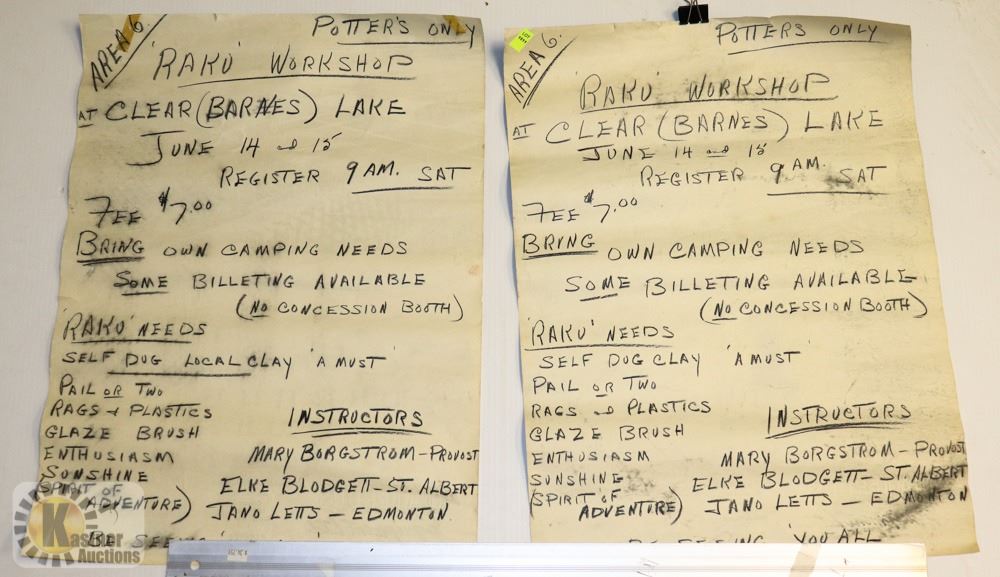 AREA 6
POTTER'S ONLY
'RAKU' WORKSHOP
AT CLEAR (BARNES) LAKE
JUNE 14 and 15
REGISTER 9 AM. SAT
FEE $7.00
BRING OWN CAMPING NEEDS
SOME BILLETING AVAILABLE
(NO CONCESSION BOOTH)
'RAKU' NEEDS
SELF DUG LOCAL CLAY 'A MUST'
PAIL OR TWO
RAGS & PLASTICS
GLAZE BRUSH
ENTHUSIASM
SUNSHINE
(SPIRIT OF
ADVENTURE)
INSTRUCTORS
MARY BORGSTROM - PROVOST
ELKE BLODGETT - ST. ALBERT
JANO LETTS - EDMONTON
BE SEEING
AREA 6.
POTTERS ONLY
'RAKU' WORKSHOP
AT CLEAR (BARNES) LAKE
JUNE 14 and 15
REGISTER 9 AM. SAT
FEE $7.00
BRING OWN CAMPING NEEDS
SOME BILLETING AVAILABLE
(NO CONCESSION BOOTH)
'RAKU' NEEDS
SELF DUG CLAY 'A MUST'
PAIL OR TWO
RAGS and PLASTICS
GLAZE BRUSH
ENTHUSIASM
SUNSHINE
(SPIRIT OF
ADVENTURE)
INSTRUCTORS
MARY BORGSTROM - PROVOST
ELKE BLODGETT - ST. ALBERT
JANO LETTS - EDMONTON
BE SEEING YOU ALL
Kastner
Auctions